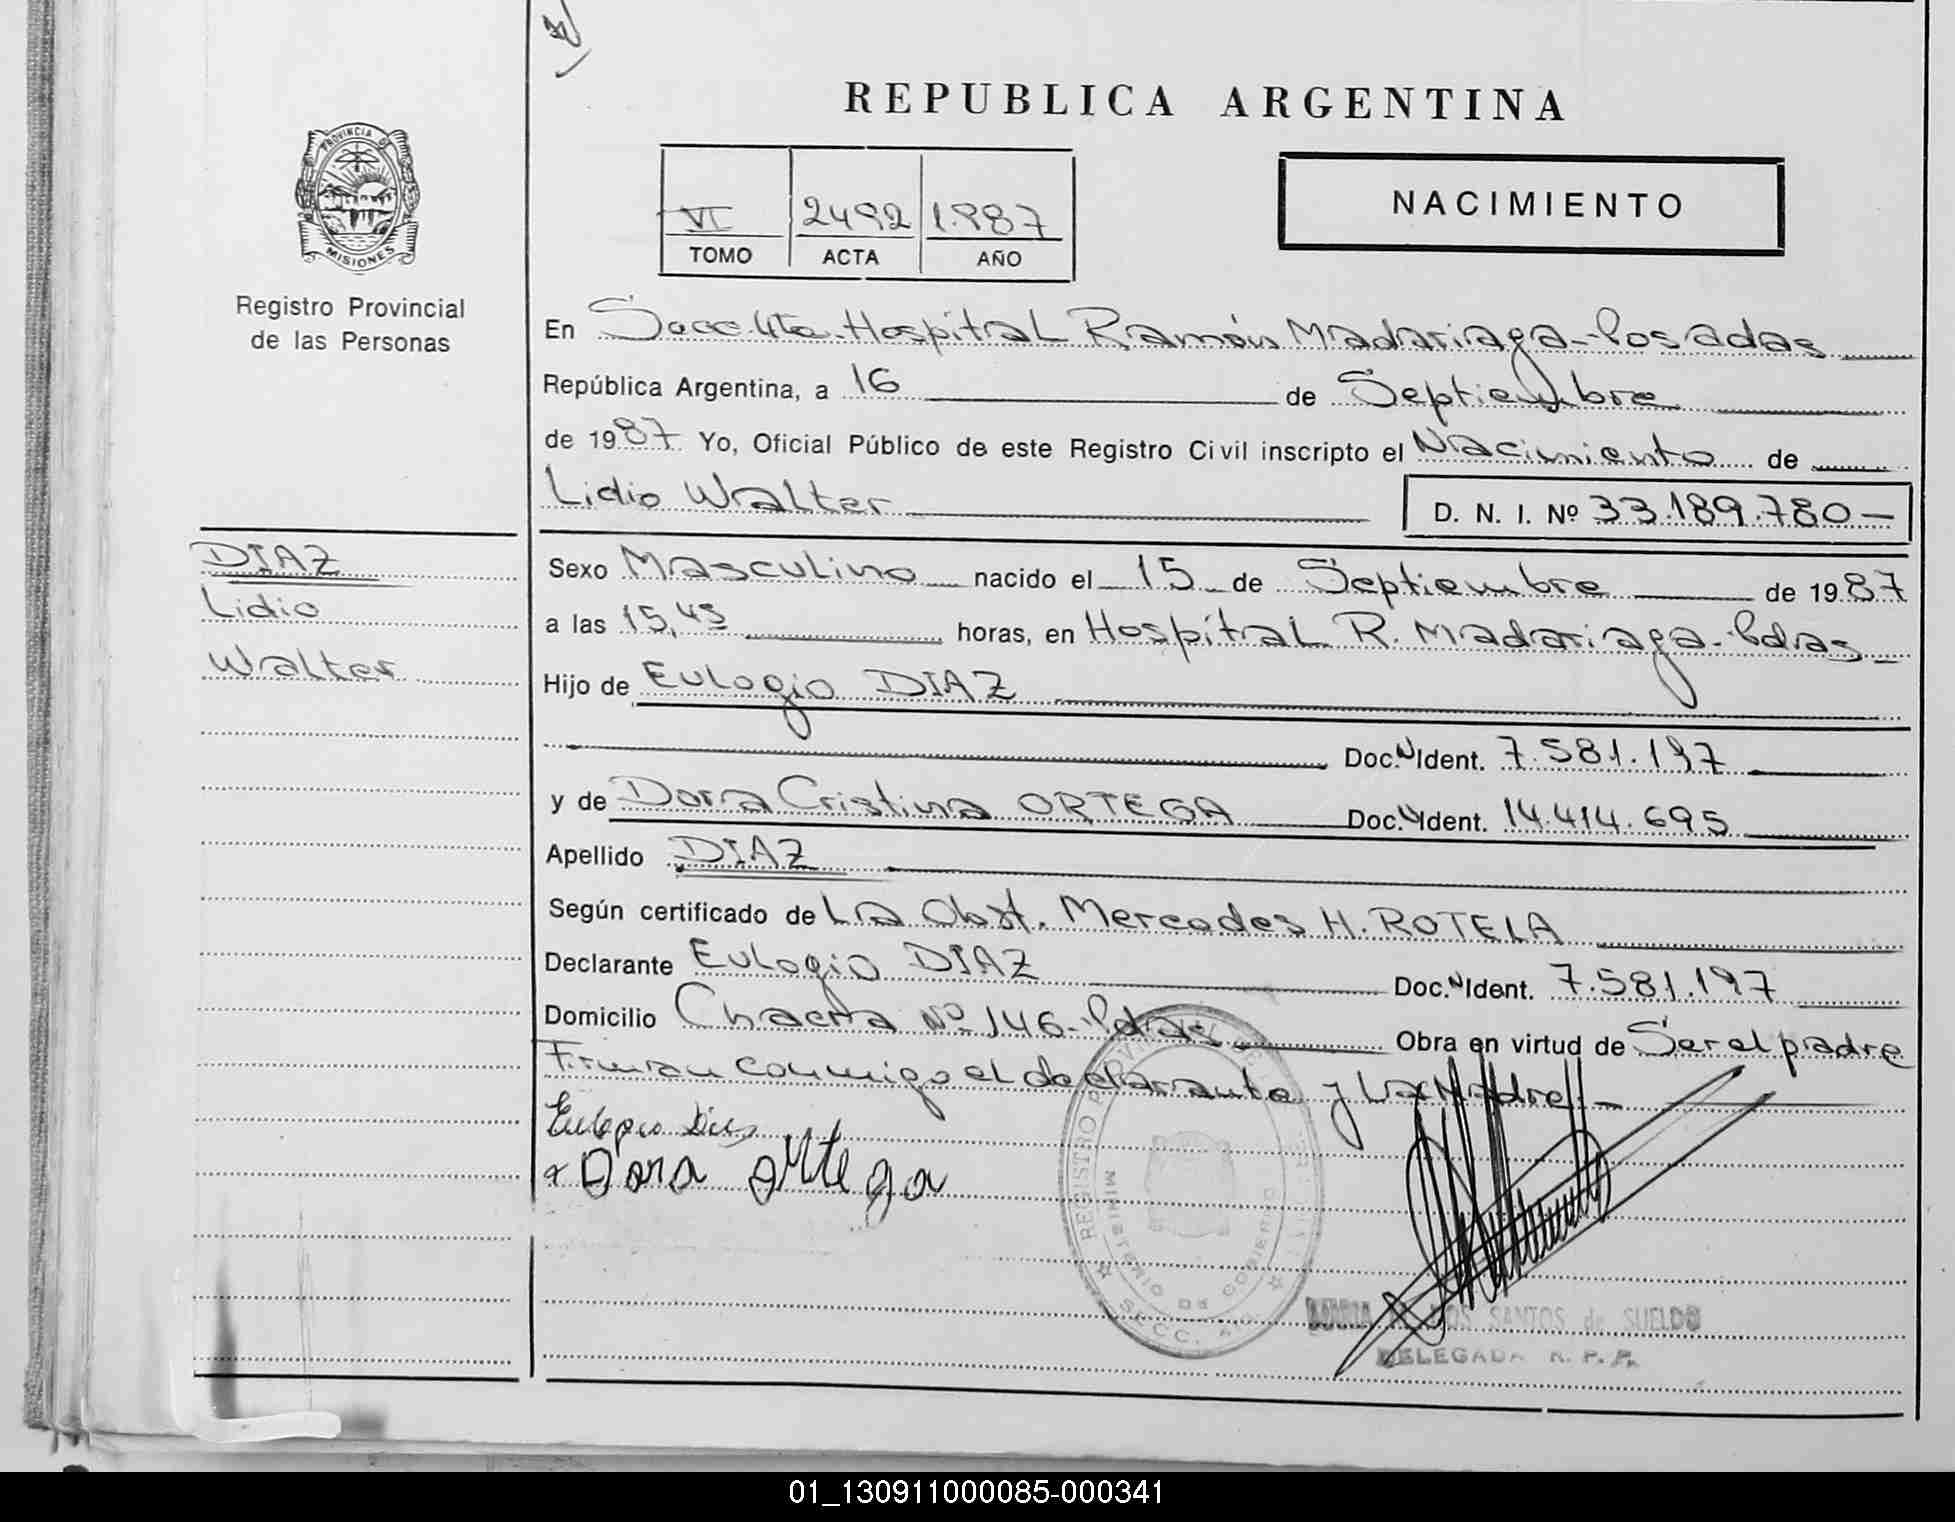 REPUBLICA ARGENTINA
PROVINCIA DE
MISIONES
Registro Provincial
de las Personas
VI 2492 1.987
TOMO ACTA AÑO
NACIMIENTO
En Secc. 4ta. Hospital Ramón Madariaga - Posadas
República Argentina, a 16 de Septiembre
de 1987 Yo, Oficial Público de este Registro Civil inscripto el Nacimiento de
Lidio Walter D. N. I. Nº 33.189.780-
DIAZ
Lidio
Walter
Sexo Masculino nacido el 15 de Septiembre de 1987
a las 15,45 horas, en Hospital R. Madariaga - Pdas
Hijo de Eulogio DIAZ
Doc. N Ident. 7.581.197
y de Dora Cristina ORTEGA Doc. N Ident. 14.414.695
Apellido DIAZ
Según certificado de La Obst. Mercedes H. ROTELA
Declarante Eulogio DIAZ Doc. N Ident. 7.581.197
Domicilio Chacra Nº 146 - Pdas Obra en virtud de Ser el padre
Firman conmigo el declarante y La Madre -
Eulogio Diaz
Dora Ortega
REGISTRO PROVINCIAL DE LAS
MINISTERIO DE GOBIERNO
SECC. 4ta.
SANTOS de SUELDO
DELEGADA R. P. P.
01_130911000085-000341